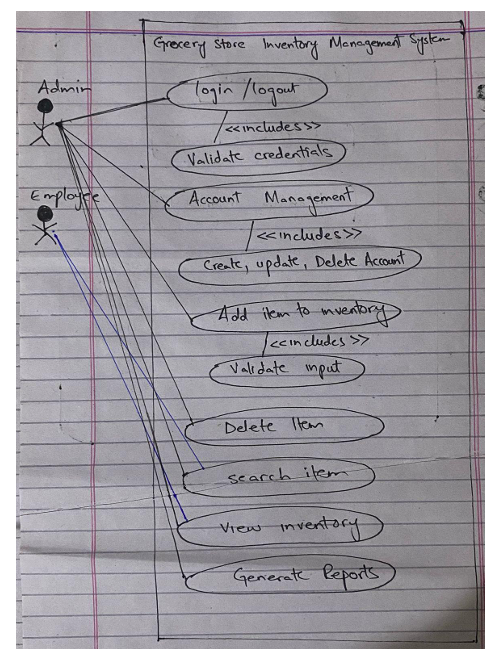 Grocery Store Inventory Management System
Admin
login /logout
<<includes>>
Validate credentials
Employee
Account Management
<<includes>>
Create, update, Delete Account
Add item to inventory
<<includes>>
Validate input
Delete Item
search item
View inventory
Generate Reports